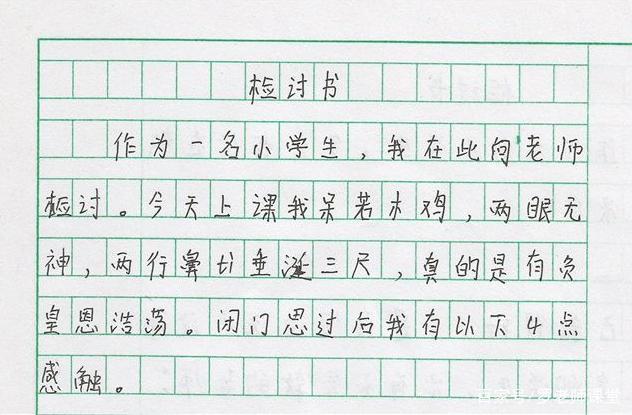 检讨书
作为一名小学生，我在此向老师
检讨。今天上课我呆若木鸡，两眼无
神，两行鼻切垂涎三尺，真的是有负
皇恩浩荡。闭门思过后我有以下4点
感触。